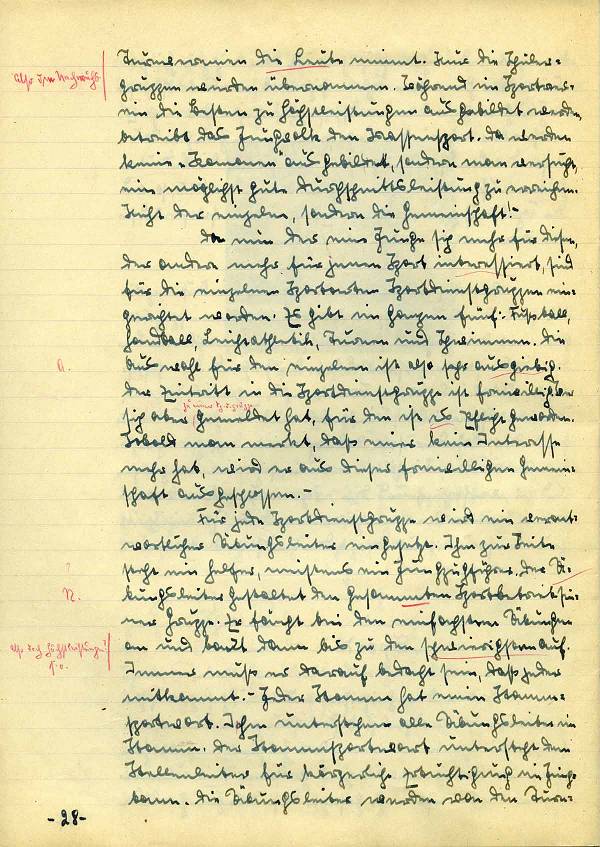 Turnvereinen die Leute nimmt. Nur die Schüler-
gruppen wurden übernommen. Während im Sportver-
ein die Besten zu Höchstleistungen ausgebildet werden,
betreibt das Jungvolk den Massensport. Da werden
keine „Kanonen" ausgebildet, sondern man versucht,
eine möglichst gute Durchschnittsleistung zu erreichen.
Nicht der einzelne, sondern die Gemeinschaft! -
Da nun der eine Junge sich mehr für diesen,
der andere mehr für jenen Sport interessiert, sind
für die einzelnen Sportarten Sportdienstgruppen ein-
gerichtet worden. Es gibt im ganzen fünf: Fußball,
Handball, Leichtathletik, Turnen und Schwimmen. Die
Auswahl für den einzelnen ist also sehr ausgiebig.
A.
Der Eintritt in die Sportdienstgruppe ist freiwillig. Wer
sich aber gemeldet hat, für den ist es Pflicht geworden.
Sobald man merkt, daß einer kein Interesse
mehr hat, wird er aus dieser freiwilligen Gemein-
schaft ausgeschlossen. -
Für jede Sportdienstgruppe wird ein verant-
wortlicher Übungsleiter eingesetzt. Ihm zur Seite
steht ein Helfer, meistens ein Jungzugführer. Der Ü-
?
R.
bungsleiter gestaltet den gesammten Sportbetrieb sei-
ner Gruppe. Er fängt bei den einfachsten Übungen
an und baut dann bis zu den schwierigsten auf.
also doch Höchstleistungen?
s.o.
Immer muß er darauf bedacht sein, daß jeder
mitkommt. - Jeder Stamm hat einen Stamm-
sportwart. Ihm unterstehen alle Übungsleiter im
Stamm. Der Stammsportwart untersteht dem
Stellenleiter für körperliche Ertüchtigung im Jung-
bann. Die Übungsleiter werden von den Turn-
-28-